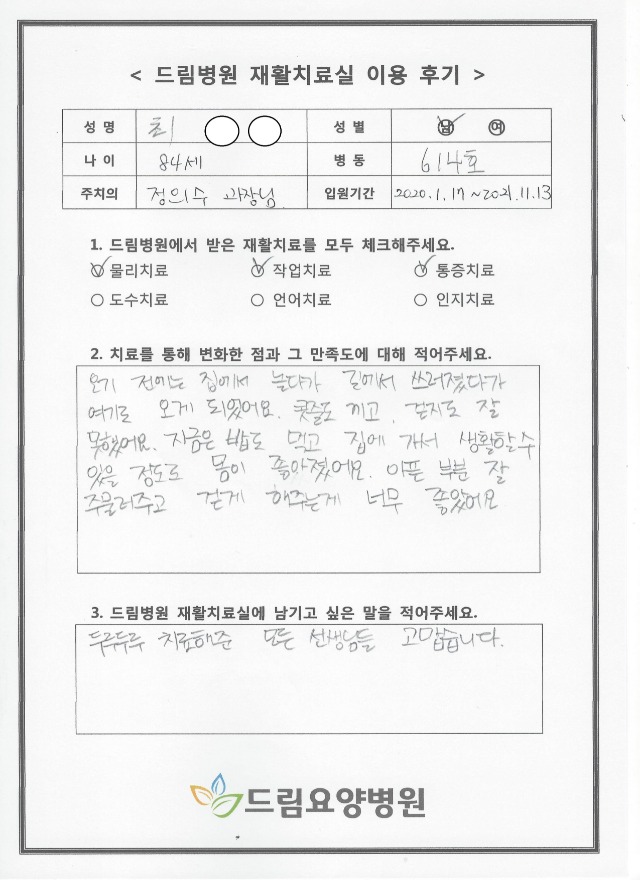 < 드림병원 재활치료실 이용 후기 >
성 명 최 ○○ 성 별 남 여
나 이 84세 병 동 614호
주치의 정의수 과장님 입원기간 2020.1.17 ~ 2021.11.13
1. 드림병원에서 받은 재활치료를 모두 체크해주세요.
물리치료 작업치료 통증치료
도수치료 언어치료 인지치료
2. 치료를 통해 변화한 점과 그 만족도에 대해 적어주세요.
오기 전에는 집에서 놀다가 길에서 쓰러졌다가
여기로 오게 되었어요. 콧줄도 끼고, 걷지도 잘
못했어요. 지금은 밥도 먹고 집에 가서 생활할수
있을 정도로 몸이 좋아졌어요. 아픈 부분 잘
주물러주고 걷게 해주는게 너무 좋았어요
3. 드림병원 재활치료실에 남기고 싶은 말을 적어주세요.
두루두루 치료해준 모든 선생님들 고맙습니다.
드림요양병원